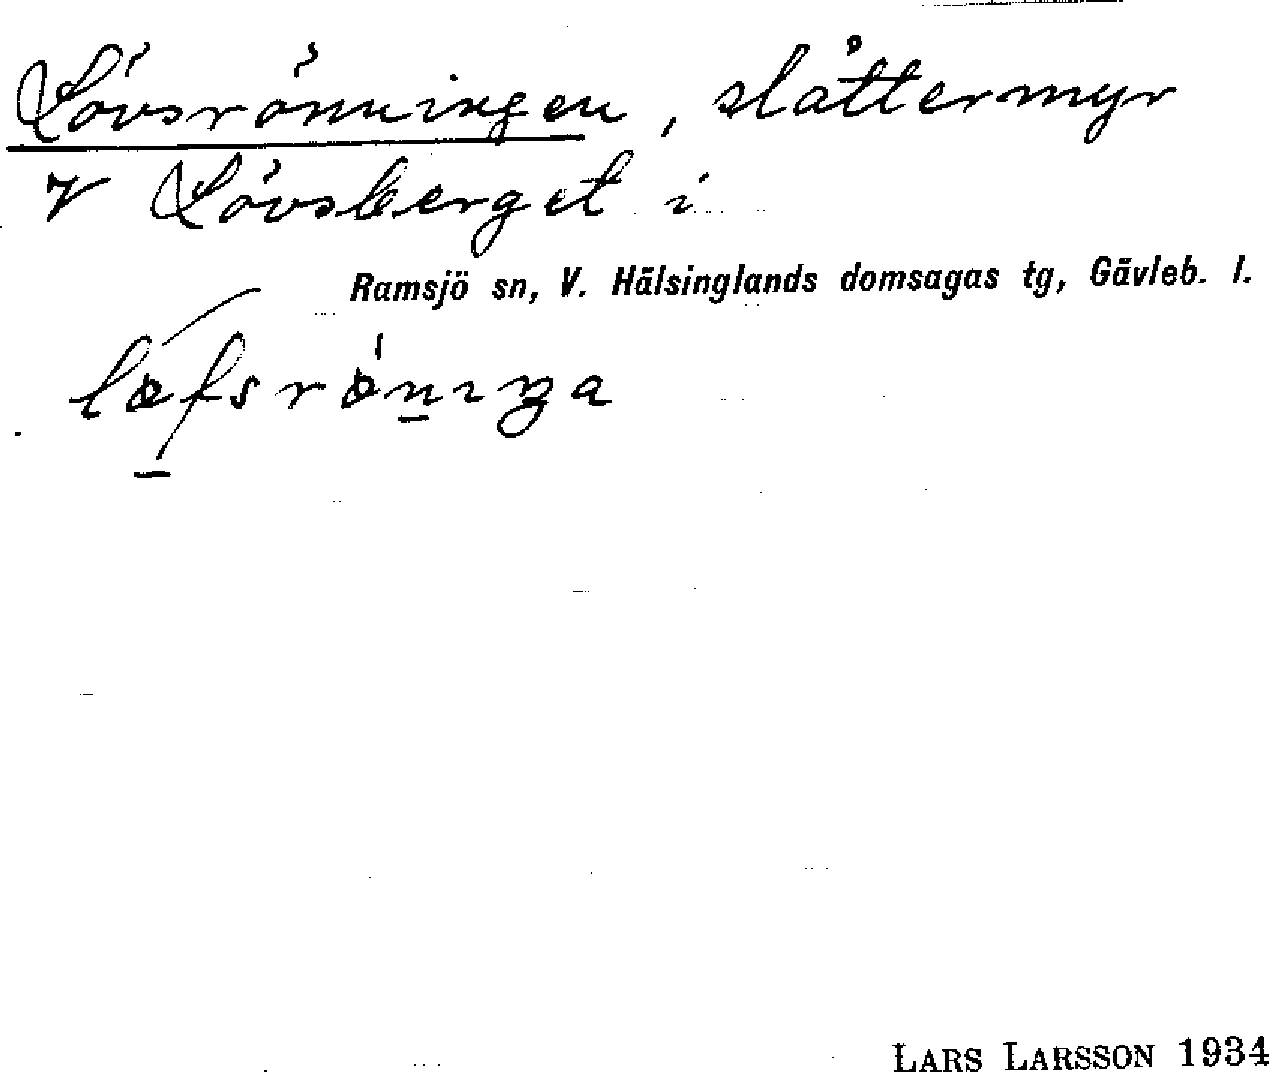 Lövsrönningen, slåttermyr
V Lövsberget i
Ramsjö sn, V. Hälsinglands domsagas tg, Gävleb. l.
LARS LARSSON 1934